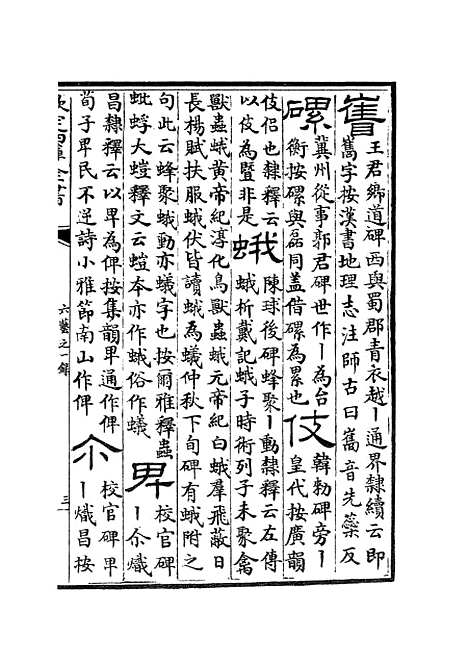 巂王君鄉道碑西與蜀郡青衣越丨通界隸續云即
雟字按漢書地理志注師古曰雟音先蘂反
磥冀州從事郭君碑世作丨為台
衡按磥與磊同盖借磥為累也伎韓勑碑旁丨
皇代按廣韻
伎侶也隸釋云
以伎為暨非是蛾陳球後碑蜂聚丨動隸釋云左傳
蛾析戴記蛾子時術列子未聚禽
獸蟲蛾黄帝紀淳化鳥獸蟲蛾元帝紀白蛾羣飛蔽日
長楊賦扶服蛾伏皆讀蛾為蟻仲秋下旬碑有蛾附之
句此云蜂聚蛾動亦蟻字也按爾雅釋蟲
蚍蜉大螘釋文云螘本亦作蛾俗作蟻𢌿校官碑丨尒熾
昌隸釋云以𢌿為俾按集韻𢌿通作俾
荀子𢌿民不迷詩小雅節南山作俾尒校官碑𢌿
丨熾昌按
欽定四庫全書
六藝之一錄
三